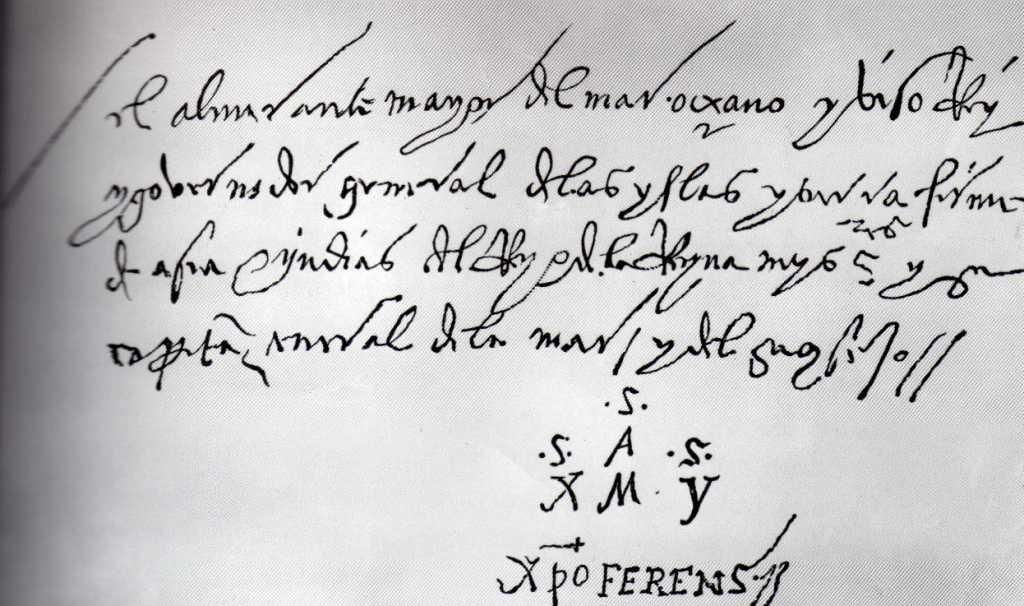 el almirante mayor del mar oçeano y viso Rey
y governador general de las yslas y tierra firme
de asia e yndias del Rey e de la Reyna mys s^res y su
capitã general de la mar y del
.S.
.S. A .S.
X M Y
Xp̄o FERENS.//